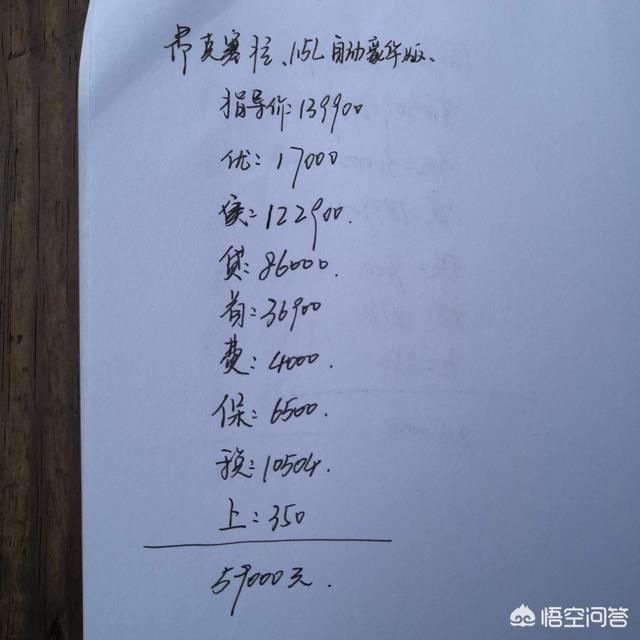 昂克赛拉、1.5L自动豪华版、
指导价:139900
优:17000
实:122900.
贷:86000.
首:36900
费:4000.
保:6500.
税:10504.
上:350
59000元.
悟空问答